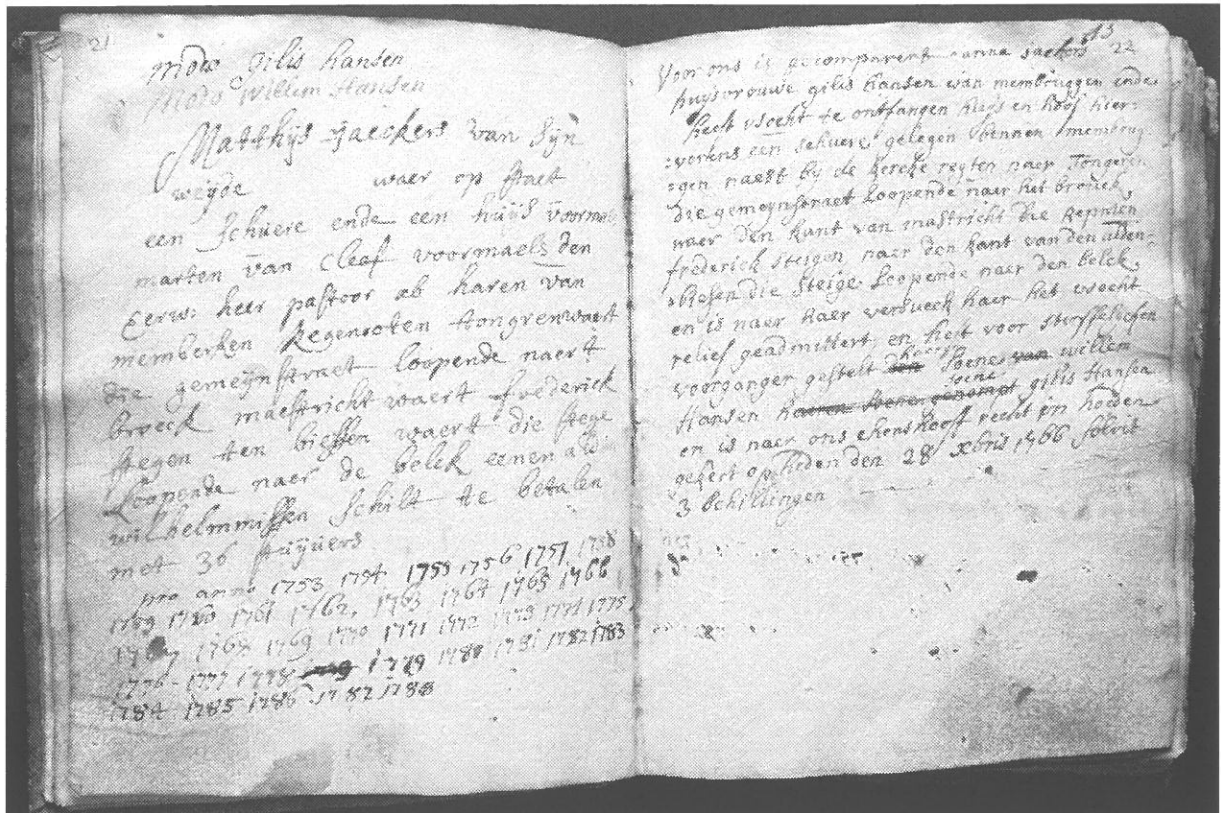 21
modo Gilis Hansen
modo Willem Hansen
Matthijs Jaeckers van Sijn
weijde waer op staet
een Schuere ende een huijs voormaels
marten van Cleef voormaels den
Eerw: heer pastoor ab haren van
memberken Regenoten tongrenwaert
die gemeijnstraet loopende naert
broeck maestricht waert frederick
stegen ten biessen waert die stege
Loopende naer de belck eenen
wilhelmmissen Schilt te betalen
met 36 stuijvers
pro anno 1753 1754 1755 1756 1757 1758
1759 1760 1761 1762, 1763 1764 1765 1766
1767 1768 1769 1770 1771 1772 1773 1774 1775
1776 - 1777 1778 1779 1780 1781 1782 1783
1784 1785 1786 1787 1788
22
Voor ons is gecomparent anna jaekers
huijsvrouwe gilis hansen van membruggen ende
heeft vsocht te ontfangen huijs en hoof hier:
een schuere gelegen binnen membrug
:gen naest by de kercke regten naer Tongeren
die gemeynstraet Loopende naer het brouck,
naer den kant van mastricht die
frederick steigen naer den kant van den alden-
:biesen die steige Loopende naer den belck,
en is naer haer versueck haer het vsocht
relief geadmittert en heet voor sterffelicken
voorganger gestelt haeren soene van willem
Hansen haeren soene genompt soene gilis Hansen
en is naer ons hooff recht in hoeden
gekert op heden den 28 xbris 1766 solvit
3 schillingen